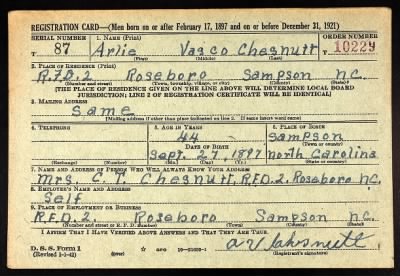 REGISTRATION CARD—(Men born on or after February 17, 1897 and on or before December 31, 1921)
SERIAL NUMBER 1. NAME (Print) ORDER NUMBER
T 87 Arlie Vasco Chesnutt T 10229
(First) (Middle) (Last)
2. PLACE OF RESIDENCE (Print)
R.F.D.2. Roseboro Sampson N.C.
(Number and street) (Town, township, village, or city) (County) (State)
[THE PLACE OF RESIDENCE GIVEN ON THE LINE ABOVE WILL DETERMINE LOCAL BOARD
JURISDICTION; LINE 2 OF REGISTRATION CERTIFICATE WILL BE IDENTICAL]
3. MAILING ADDRESS
Same
[Mailing address if other than place indicated on line 2. If same insert word same]
4. TELEPHONE 5. AGE IN YEARS 6. PLACE OF BIRTH
44 Sampson
DATE OF BIRTH (Town or county)
Sept. 27, 1897 North Carolina
(Exchange) (Number) (Mo.) (Day) (Yr.) (State or country)
7. NAME AND ADDRESS OF PERSON WHO WILL ALWAYS KNOW YOUR ADDRESS
Chesnutt, R.F.D.2. Roseboro N.C.
8. EMPLOYER'S NAME AND ADDRESS
Self
9. PLACE OF EMPLOYMENT OR BUSINESS
R.F.D.2. Roseboro Sampson N.C.
(Number and street or R. F. D. number) (Town) (County) (State)
I AFFIRM THAT I HAVE VERIFIED ABOVE ANSWERS AND THAT THEY ARE TRUE.
D. S. S. Form 1
(Revised 1-1-42) (over)